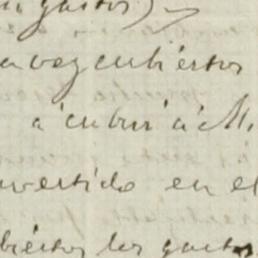 gastos)
vez cubiertos
á cubrir á M.
nvertido en el
biertos los gastos